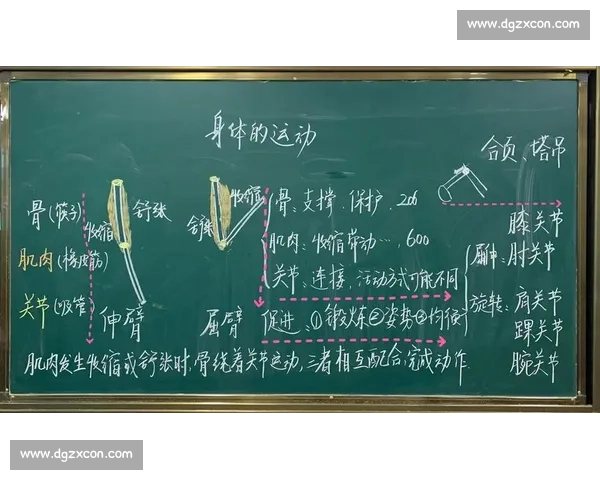 www.dgzxcon.com
身体的运动
合页、塔吊
骨(筷子)
收缩
舒张
肌肉(橡皮筋)
关节(吸管)
伸臂
收缩
舒张
屈臂
骨:支撑、保护、206
肌肉:收缩带动…,600
关节:连接、活动方式可能不同
促进:①锻炼②姿势③均衡
膝关节
屈伸:肘关节
旋转:肩关节
踝关节
腕关节
肌肉发生收缩或舒张时,骨绕着关节运动,三者相互配合,完成动作.
www.dgzxcon.com